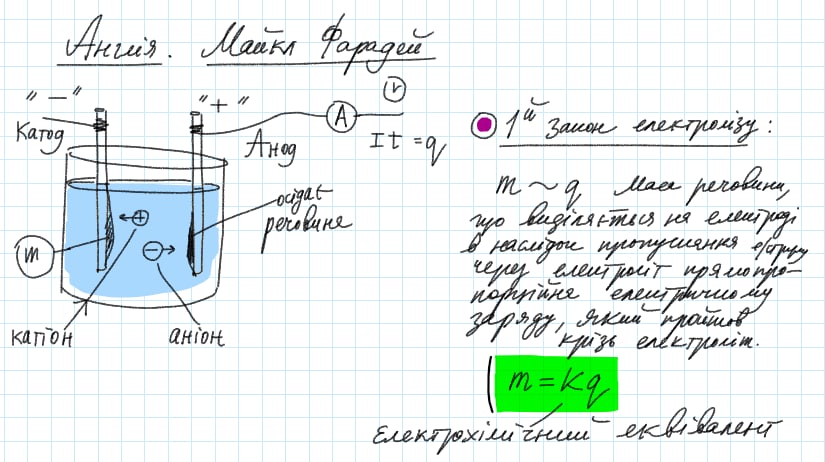 Англія. Майкл Фарадей
"—" "+" A r
Катод Анод It = q
осідає
речовина
+
−
m
катіон аніон
1й Закон електролізу:
m ~ q Маса речовини,
що виділяється на електроді
в наслідок пропускання ел/струму
через електроліт прямопро-
порційна електричному
заряду, який пройшов
крізь електроліт.
m = Kq
Електрохімічний еквівалент